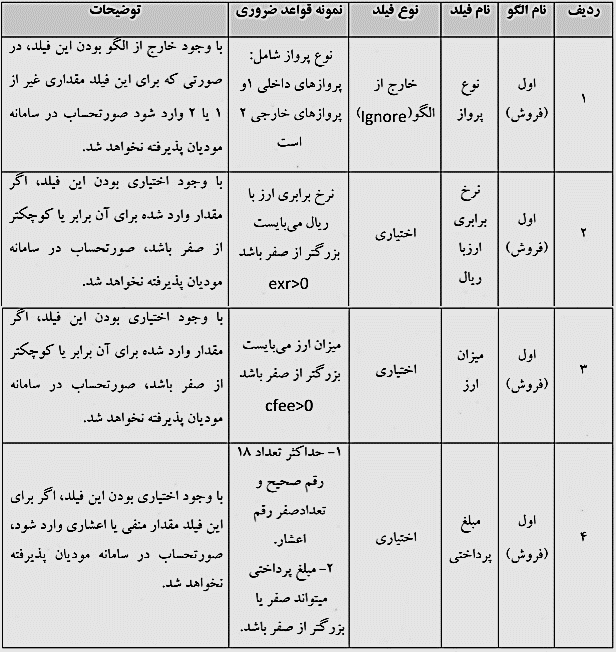 ردیف
نام الگو
نام فیلد
نوع فیلد
نمونه قواعد ضروری
توضیحات
۱
اول
(فروش)
نوع
پرواز
خارج از
الگو(Ignore)
نوع پرواز شامل:
پروازهای داخلی ۱و
پروازهای خارجی ۲
است
با وجود خارج از الگو بودن این فیلد، در
صورتی که برای این فیلد مقداری غیر از
۱ یا ۲ وارد شود صورتحساب در سامانه
مودیان پذیرفته نخواهد شد.
۲
اول
(فروش)
نرخ
برابری
ارزبا
ریال
اختیاری
نرخ برابری ارز با
ریال می‌بایست
بزرگتر از صفر باشد
exr>0
با وجود اختیاری بودن این فیلد، اگر
مقدار وارد شده برای آن برابر یا کوچکتر
از صفر باشد، صورتحساب در سامانه
مودیان پذیرفته نخواهد شد.
۳
اول
(فروش)
میزان
ارز
اختیاری
میزان ارز می‌بایست
بزرگتر از صفر باشد
cfee>0
با وجود اختیاری بودن این فیلد، اگر
مقدار وارد شده برای آن برابر یا کوچکتر
از صفر باشد، صورتحساب در سامانه
مودیان پذیرفته نخواهد شد.
۴
اول
(فروش)
مبلغ
پرداختی
اختیاری
۱- حداکثر تعداد ۱۸
رقم صحیح و
تعدادصفر رقم
اعشار.
۲- مبلغ پرداختی
میتواند صفر یا
بزرگتر از صفر باشد.
با وجود اختیاری بودن این فیلد، اگر برای
این فیلد مقدار منفی یا اعشاری وارد شود،
صورتحساب در سامانه مودیان پذیرفته
نخواهد شد.